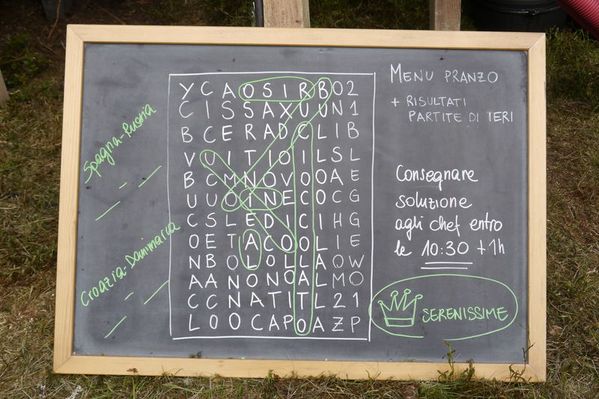 Spagna-Russia
Croazia-Danimarca
Y C A O S I R B O 2
C I S S A X U U N 1
B C E R A D C L I B
V U I T I O I L S L
B C M N O V O O A E
U U O I N E C O C G
C S L E D I C I H G
O E T A C O O L I E
N B O L O I L A O W
A A N O N O A L M O
C C N A T I T L 2 1
L O O C A P O A Z P
MENU PRANZO
+ RISULTATI
PARTITE DI IERI
Consegnare
soluzione
agli chef entro
le 10:30 +1h
SERENISSIME